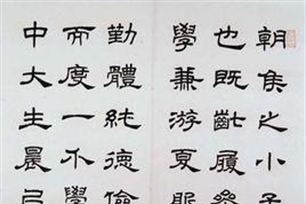 朝侯之小子
也既齔履
學兼游夏服
勤體純德儉
而度一不學
中大生晨